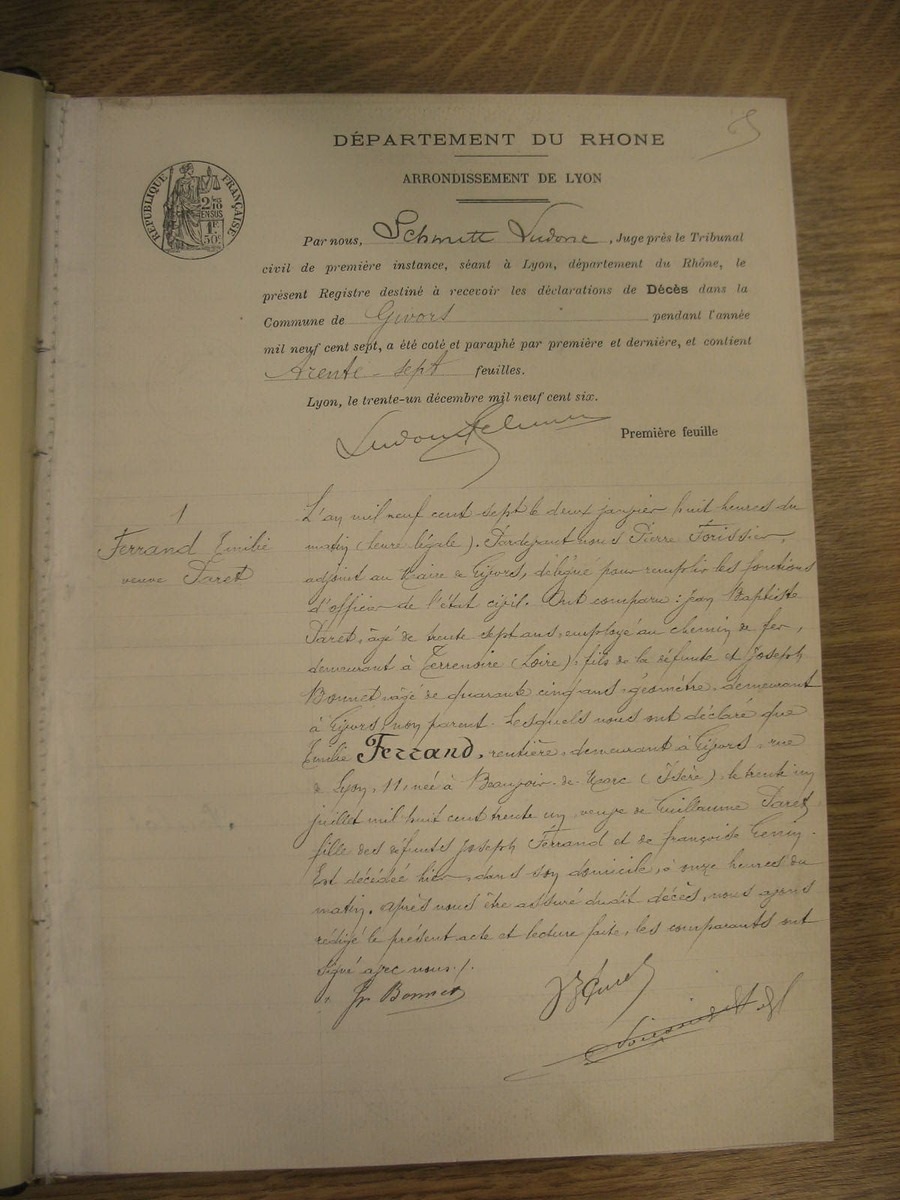 DÉPARTEMENT DU RHONE
ARRONDISSEMENT DE LYON
RÉPUBLIQUE FRANÇAISE
2/10 EN SUS
1F 50c
Par nous, Schmitt Ludovic, Juge près le Tribunal
civil de première instance, séant à Lyon, département du Rhône, le
présent Registre destiné à recevoir les déclarations de Décès dans la
Commune de Givors pendant l'année
mil neuf cent sept, a été coté et paraphé par première et dernière, et contient
trente-sept feuilles.
Lyon, le trente-un décembre mil neuf cent six.
Première feuille
1
Ferrand Emilie
veuve Paret
L'an mil neuf cent sept le deux janvier huit heures du
matin (heure légale). Pardevant nous Pierre Forissier,
adjoint au Maire de Givors, délégué pour remplir les fonctions
d'officier de l'état civil. Ont comparu : Jean Baptiste
Paret, âgé de trente sept ans, employé au chemin de fer,
demeurant à Terrenoire (Loire), fils de la défunte et Joseph
Bonnet, âgé de quarante cinq ans, géomètre, demeurant
à Givors, non parent. Lesquels nous ont déclaré que
Emilie Ferrand, rentière, demeurant à Givors, rue
de Lyon, 11, née à Beauvoir-de-Marc (Isère), le trente un
juillet mil huit cent trente un, veuve de Guillaume Paret,
fille des défunts Joseph Ferrand et de françoise Genin.
Est décédée hier, dans son domicile, à onze heures du
matin. Après nous être assuré dudit décès, nous avons
rédigé le présent acte et lecture faite, les comparants ont
signé avec nous /.
Jh Bonnet